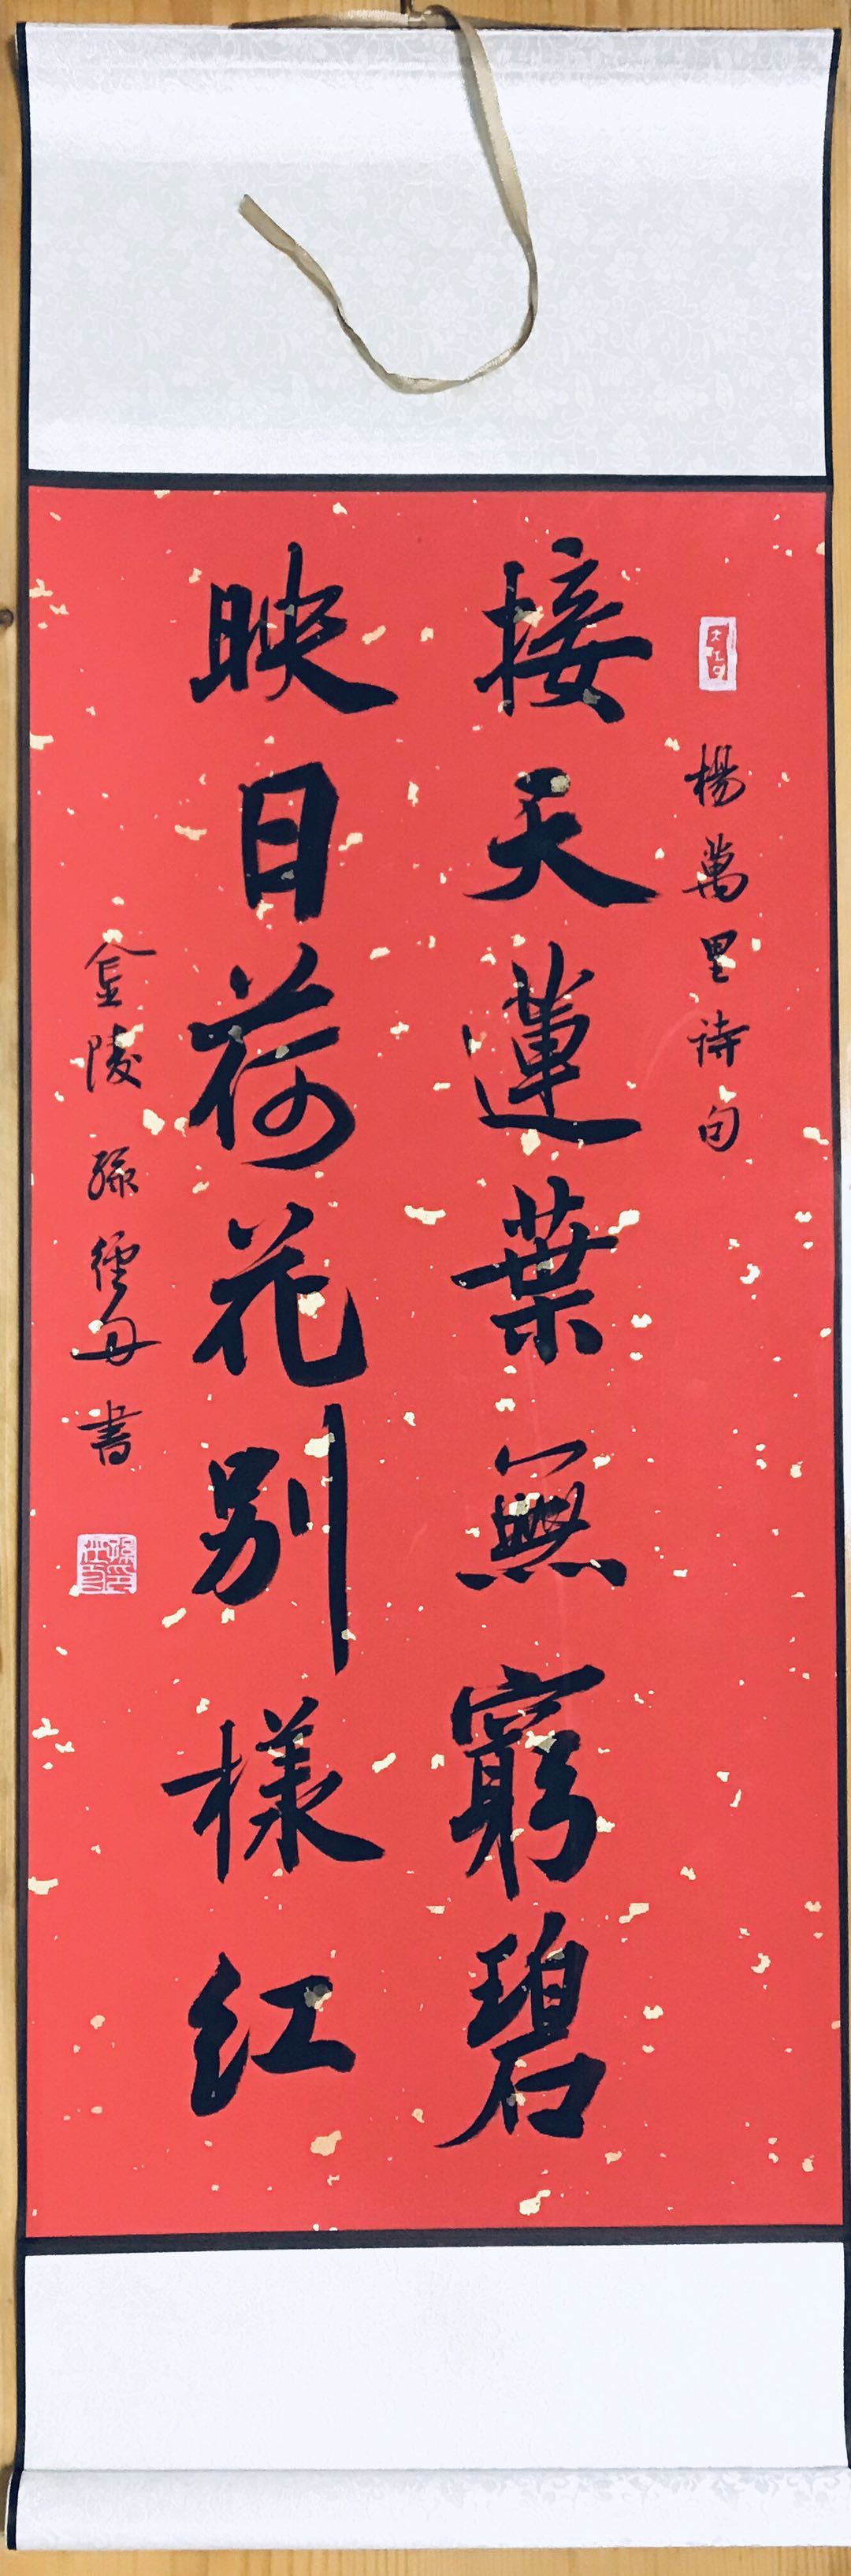 楊萬里诗句
接天蓮葉無窮碧
映日荷花别樣红
金陵 孫 書